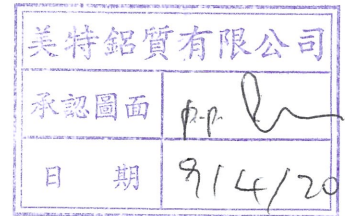 美特鋁質有限公司
承認圖面 p.p.
日 期 9/4/20